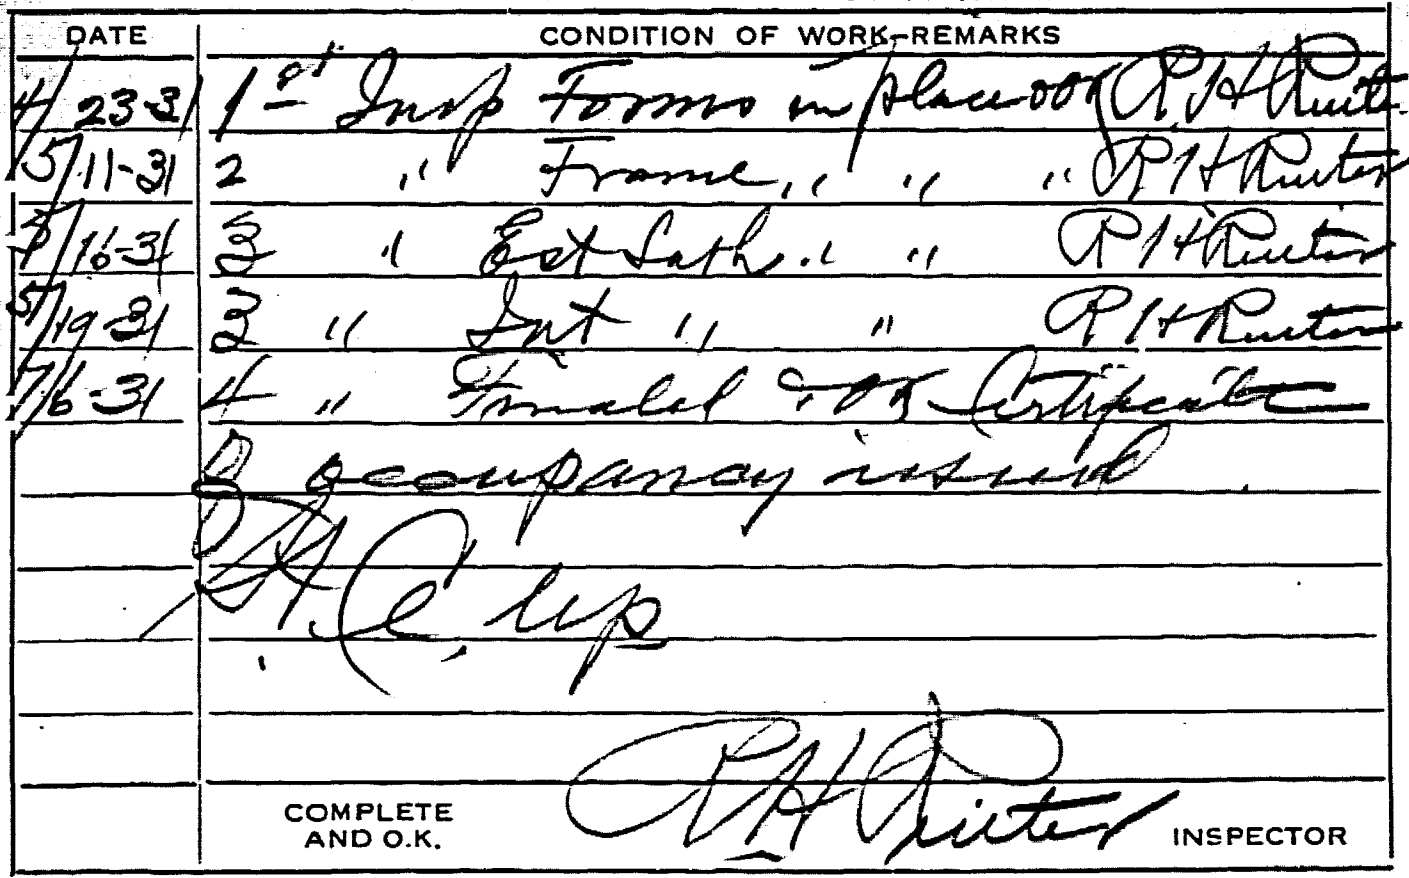 DATE CONDITION OF WORK-REMARKS
4/23-31 1st Insp Forms in place OK R H Ruiter
5/11-31 2 " Frame " " " R H Ruiter
5/16-31 3 " Ext Lath " " R H Ruiter
5/19-31 3 " Int " " R H Ruiter
7/6-31 4 " Finaled & OK Certificate
occupancy issued
up
R H Ruiter
COMPLETE
AND O.K. INSPECTOR